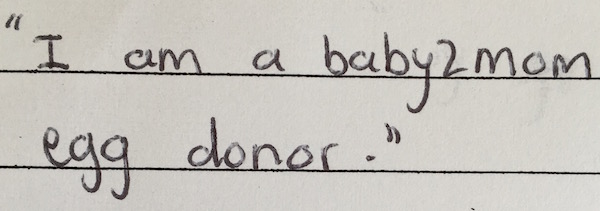 "I am a baby2mom
egg donor."